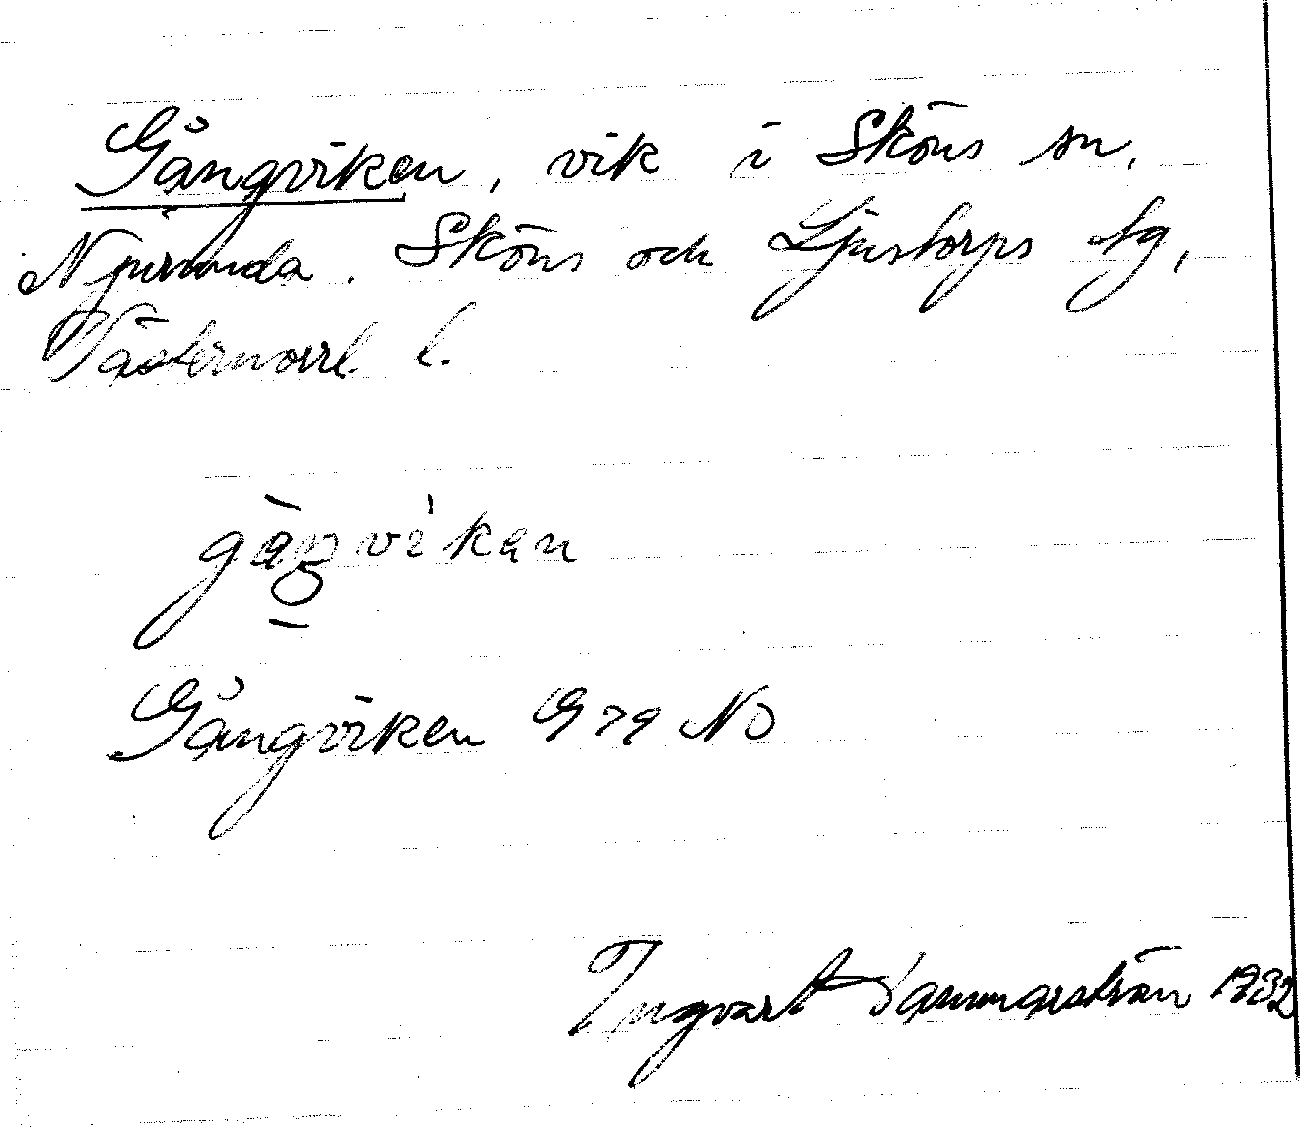 Gångviken, vik i Sköns sn,
Njurunda. Sköns och Ljustorps tg,
Västernorrl l.
gåŋvikan
Gångviken G 79 NO
Ingvart Hammarström 1932